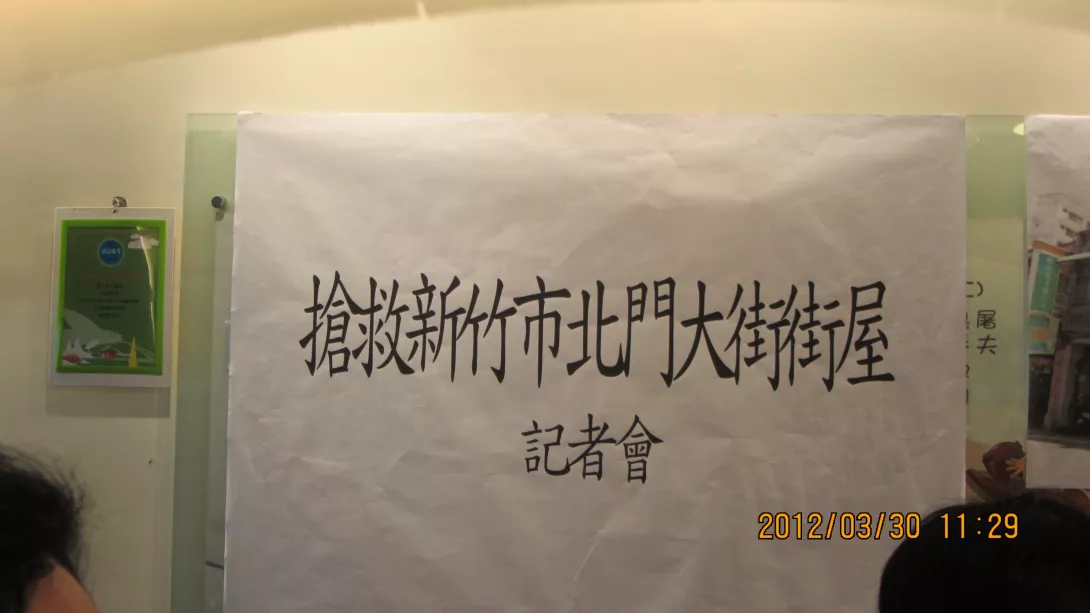 搶救新竹市北門大街街屋
記者會
屠
夫
2012/03/30 11:29